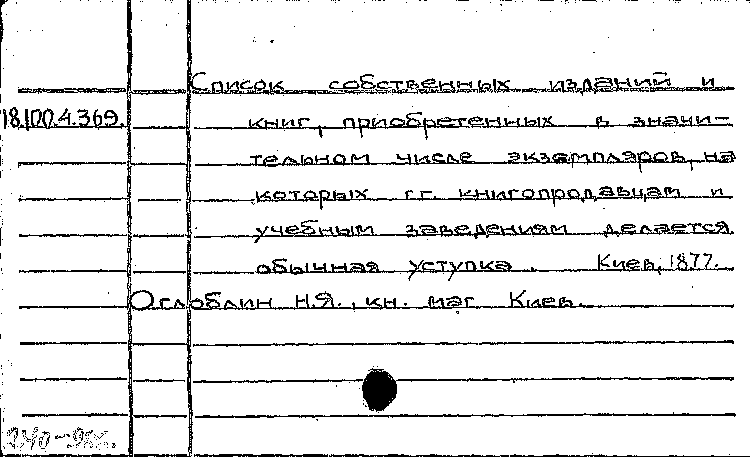 Список собственных изданий и
18.100.4.369. книг, приобретенных в значи-
тельном числе экземпляров, на
которых г.г. книгопродавцам и
учебным заведениям делается
обычная уступка. Киев, 1877.
Оглоблин Н.Я., кн. маг. Киев.